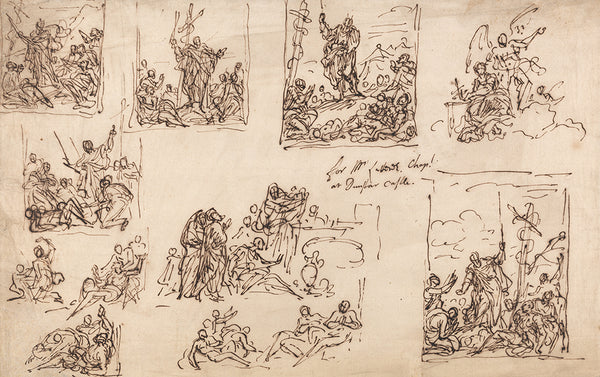 for Mr Chapl.
at Dunster Castle.